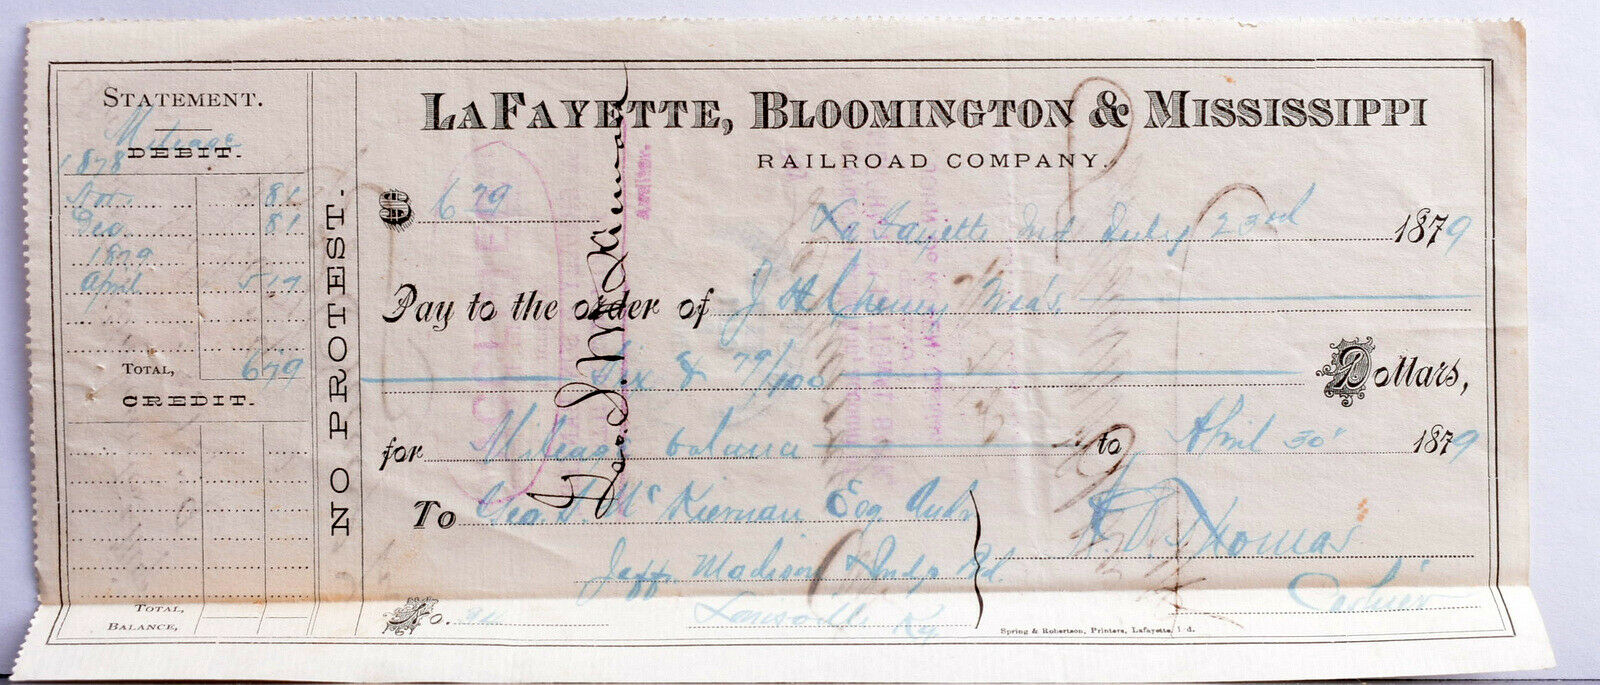 STATEMENT.
Mileage
DEBIT.
1878
Nov. 81
Dec. 81
1879
April 5 17
TOTAL, 6 79
CREDIT.
TOTAL,
BALANCE,
NO PROTEST.
LAFAYETTE, BLOOMINGTON & MISSISSIPPI
RAILROAD COMPANY.
$ 6 79
La Fayette Ind July 23rd 1879
Pay to the order of J H Cheney
Six & 79/100 Dollars,
for Mileage balance to April 30' 1879
To Geo. J. McKiernan Esq Audr
Jeff. Madison & Indp Rd.
Louisville Ky
No.
Thomas
Cashier
Geo. J. McKiernan
Auditor.
Spring & Robertson, Printers, Lafayette, Ind.